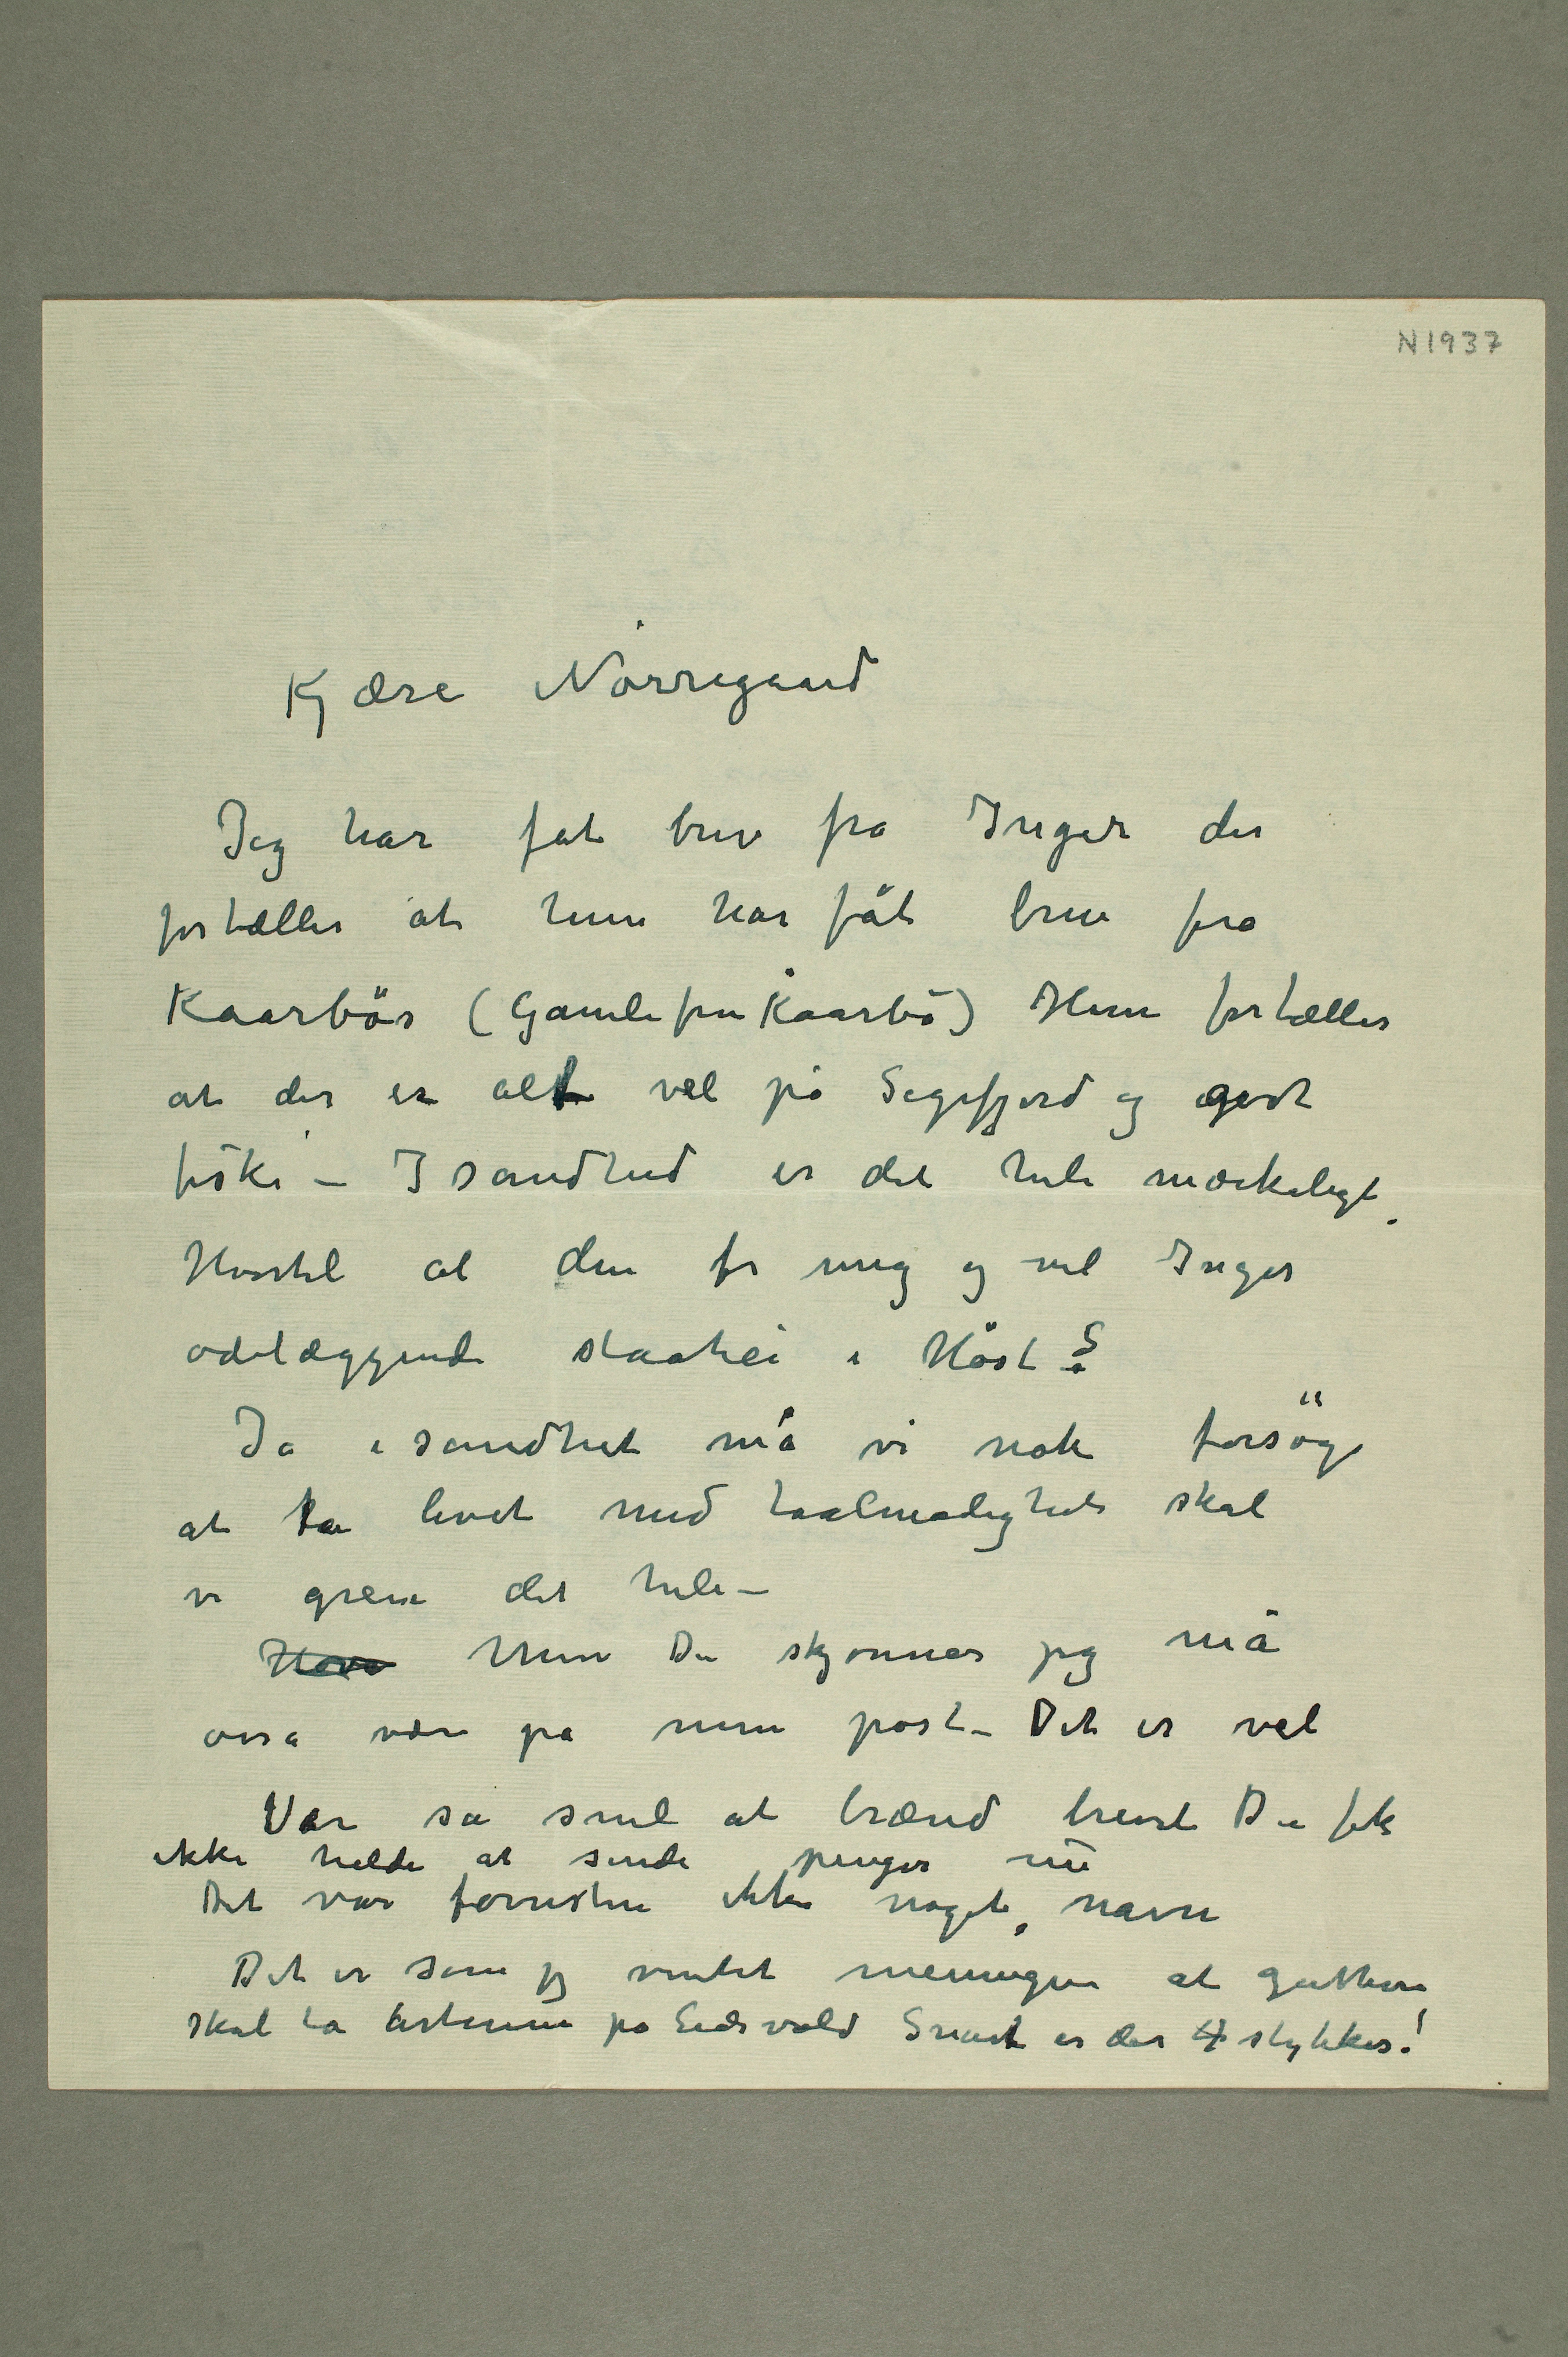 N1937
Kjære Nørregaard
Jeg har fåt brev fra Inger der
fortæller at hun har fåt brev fra
Kaarbøs (Gamle fru Kaarbø) Hun fortæller
at der er alt vel på Sigefjord og godt
fiske – I sandhed er det hele mærkeligt.
Hvortil al den for mig og vel Inger
ødelæggende staahei i Høst?
Ja i sandhet må vi nok forsøge
at ta livet med taalmodighet skal
vi greie det hele –
Men Du skjønner jeg må
osså være på min post – Det er vel
Vær så snil at brænd brevet Du fik
ikke heldig at sende penger nu
Det var forresten ikke noget navn
Det er som jeg ventet meningen at guttene
skal ta artiums på Eidsvold Snart er der 4 stykker!